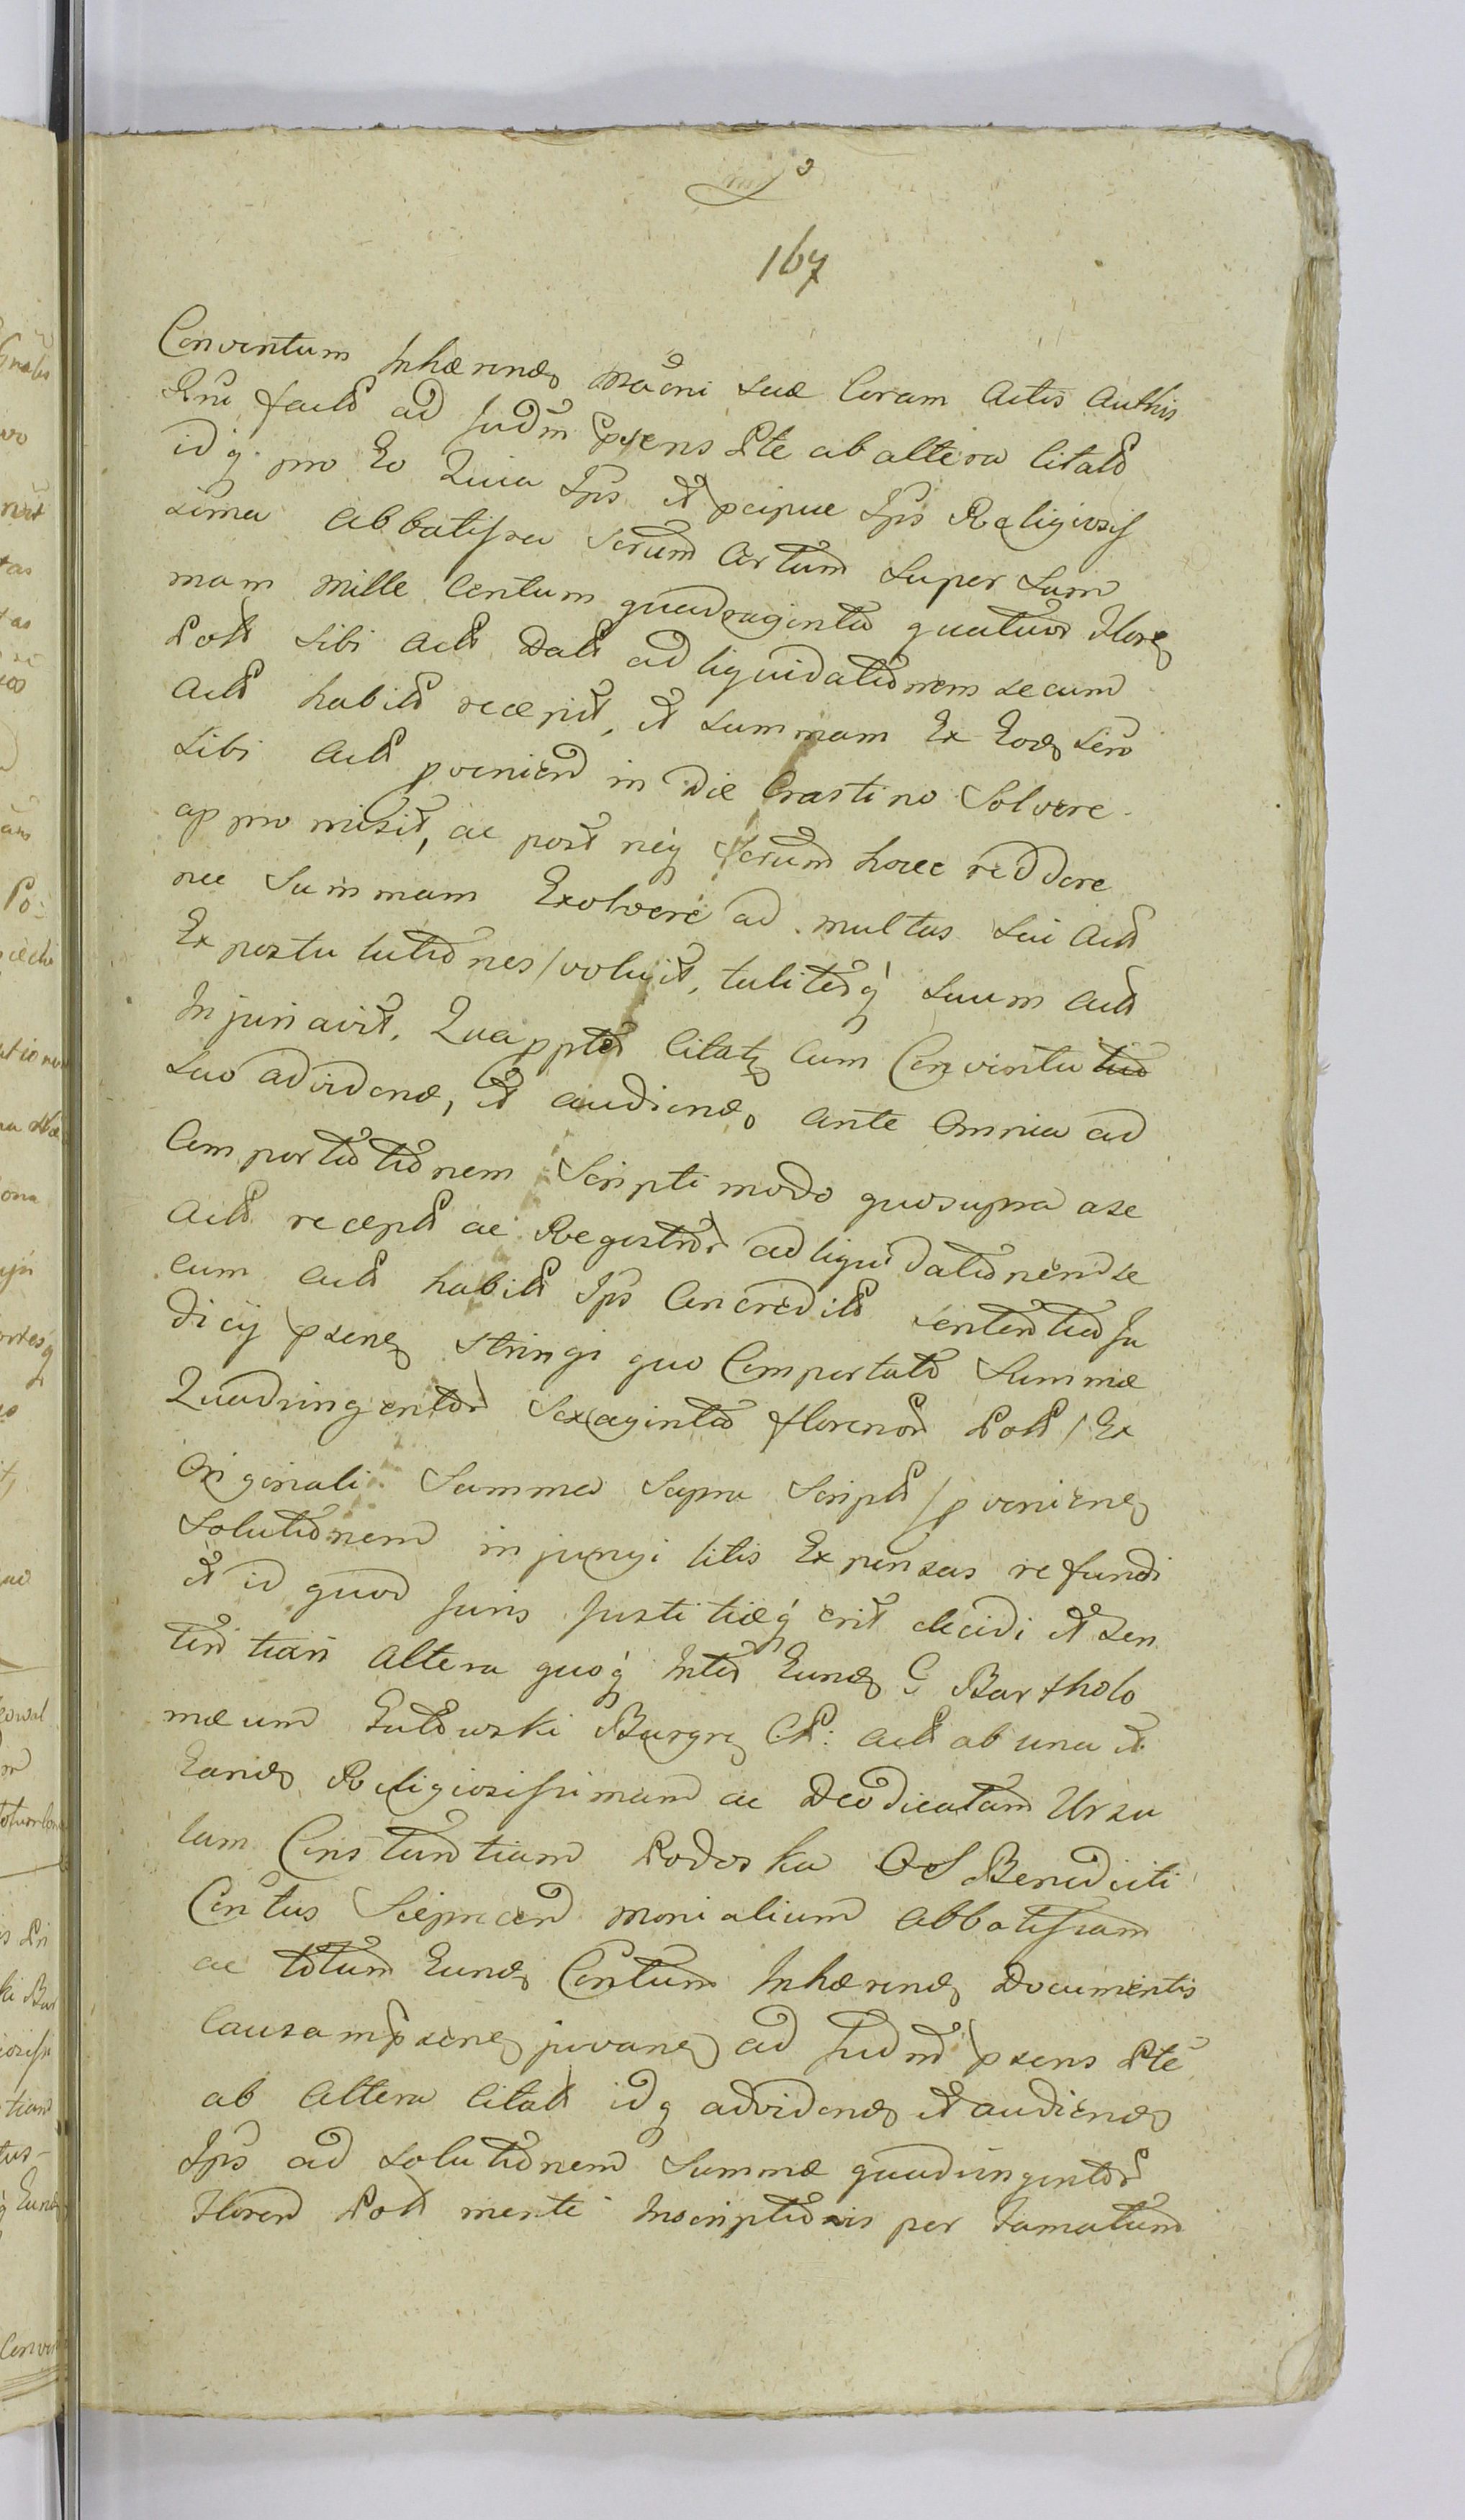 167
Conventum Inhærend Mãoni suæ Coram Actis Authis
fact ad Judm pñens Pte ab altera Citat
idq pro Eo Quia Ips et pcipue Ips Religiosis
sima Abbatissa Scrum Certum super Sum
mam Mille Centum quadraginta quatuor Flore
Pol sibi Act Dat ad liquidationem secum
Act habit recepit, et summam Ex Eod
sibi Act pvenien in die Crastino Solvere
appromisit, ac post neq Scrum hocce reddere
nec Summam Exolvere ad multas sui Act
Expostulationes voluit, taliterq suum Act
Injuriavit, Quappter Citat Cum Conventu
suo advidend, et audiend ante Omnia ad
Comportationem Scripti modo quo supra a se
Act recept ac Registror ad liquidationem se
cum Act habit Ips Concredit sententia Ju
dicij psene stringi quo Comportato Summæ
Quadringentor Sexaginta florenor Pol / Ex
Originali Summa Supra Script / pveniene
Solutionem injungi litis Expensas refundi
et id quod Juris Justitiæq erit decidi et sen
tentiari Altera quoq Inter Eund G Bartholo
mæum Gutowski Burgra Act ab una et
Eand Religiosissimam ac Deodicatam Ursu
lam Constantiam Podoska O S Benedicti
Contus Sieprcen Monialium Abbatissam
ac totum Eund Contum Inhærend Documentis
Causam psene juvane ad Judm psens Pte
ab Altera Citat idq advidend et audiend
Ips ad solutionem Summæ quadringentor
Floren Pol mente Inscriptionis per Famatum